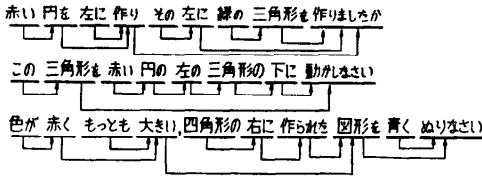 赤い 円を 左に 作り その 左に 緑の 三角形を 作りましたか
この 三角形を 赤い 円の 左の 三角形の 下に 動かしなさい
色が 赤く もっとも 大きい, 四角形の 右に 作られた 図形を 青く ぬりなさい